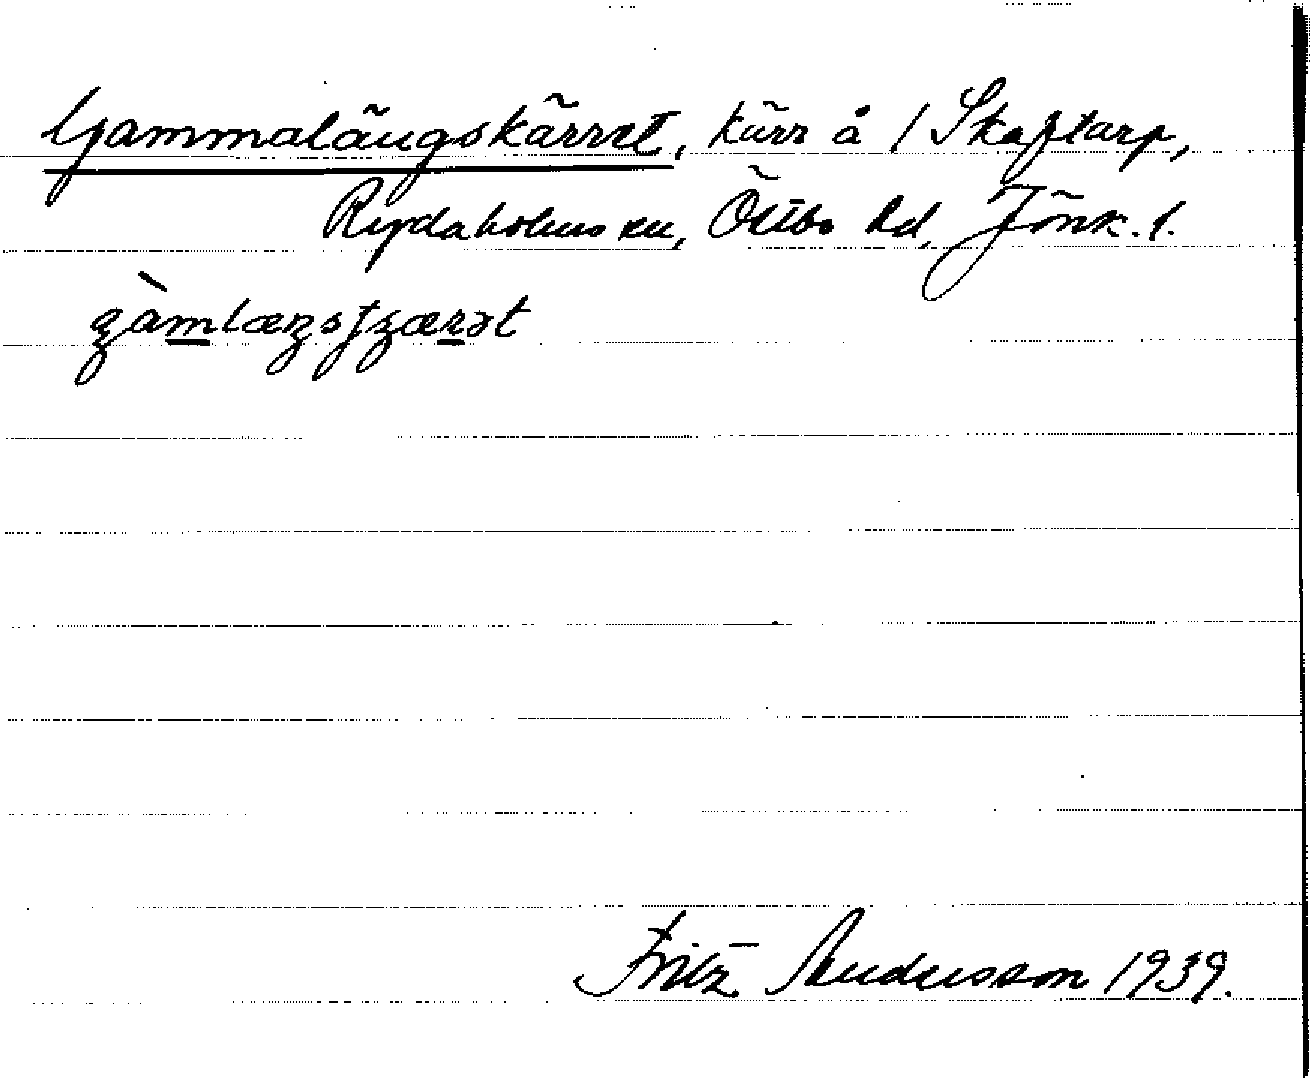 Gammalängskärret, kärr å / Skaftarp,
Rydaholms sn, Östbo hd, Jönk. l.
Fritz Andersson 1939.